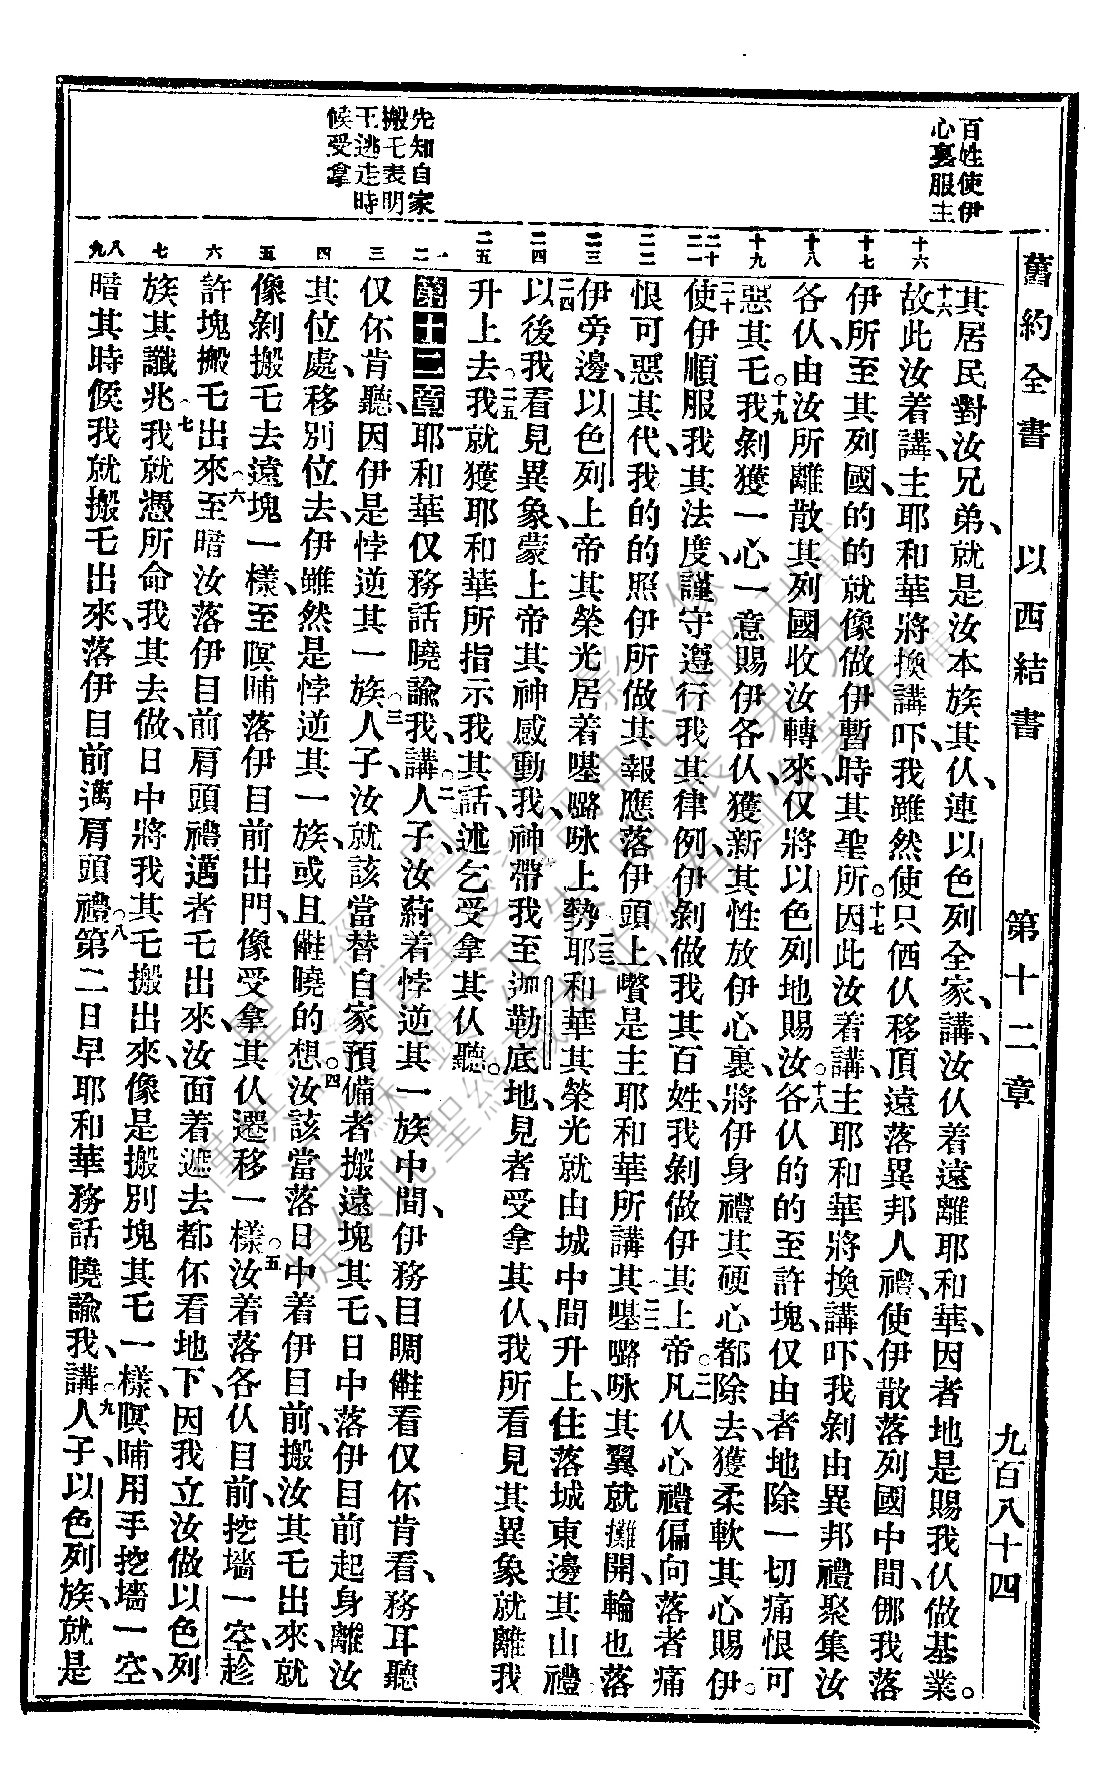 舊約全書 以西結書 第十二章 九百八十四
百姓使伊
心裏服主
先知自家
搬乇表明
王逃走時
候受拿
十六
十七
十八
十九
二十
二一
二二
二三
二四
二五
一
二
三
四
五
六
七
八
九
其居民對汝兄弟、就是汝本族其仈、連以色列全家、講、汝仈着遠離耶和華、因者地是賜我仈做基業。
十六故此汝着講、主耶和華將換講吓、我雖然使只儕仈移頂遠落異邦人禮、使伊散落列國中間、㑚我落
伊所至其列國、的的就像做伊暫時其聖所。十七因此汝着講、主耶和華將換講吓、我剝由異邦禮聚集汝
各仈、由汝所離散其列國收汝轉來、仅將以色列地賜汝。十八各仈的的至許塊、仅由者地除一切痛恨可
惡其乇。十九我剝獲一心一意賜伊各仈、獲新其性放伊心裏、將伊身禮其硬心都除去、獲柔軟其心賜伊。
二十使伊順服我其法度、謹守遵行我其律例、伊剝做我其百姓、我剝做伊其上帝。二一凡仈心禮偏向落者痛
恨可惡其代、我的的照伊所做其報應落伊頭上、嚽是主耶和華所講其。二二𡅏𡀔咏其翼就攤開、輪也落
伊旁邊、以色列上帝其榮光居着𡅏𡀔咏上勢。二三耶和華其榮光就由城中間升上、住落城東邊其山禮。
二四以後我看見異象、蒙上帝其神感動我、神帶我至迦勒底地、見者受拿其仈、我所看見其異象就離我
升上去。二五我就獲耶和華所指示我其話、述乞受拿其仈聽。
第十二章 一耶和華仅務話曉諭我、講、二人子、汝蒞着悖逆其一族中間、伊務目睭𣍐看仅伓肯看、務耳聽
仅伓肯聽、因伊是悖逆其一族。三人子、汝就該當替自家預備者搬遠塊其乇、日中落伊目前起身、離汝
其位處、移別位去、伊雖然是悖逆其一族、或且𣍐曉的想。四汝該當落日中着伊目前、搬汝其乇出來、就
像剝搬乇去遠塊一樣、至暝晡落伊目前出門、像受拿其仈遷移一樣。五汝着落各仈目前、挖墻一空、趁
許塊搬乇出來。六至暗汝落伊目前肩頭禮邁者乇出來、汝面着遮去、都伓看地下、因我立汝做以色列
族其讖兆。七我就憑所命我其去做、日中將我其乇搬出來、像是搬別塊其乇一樣、暝晡用手挖墻一空、
暗其時候我就搬乇出來、落伊目前邁肩頭禮。八第二日早耶和華務話曉諭我、講。九人子、以色列族、就是